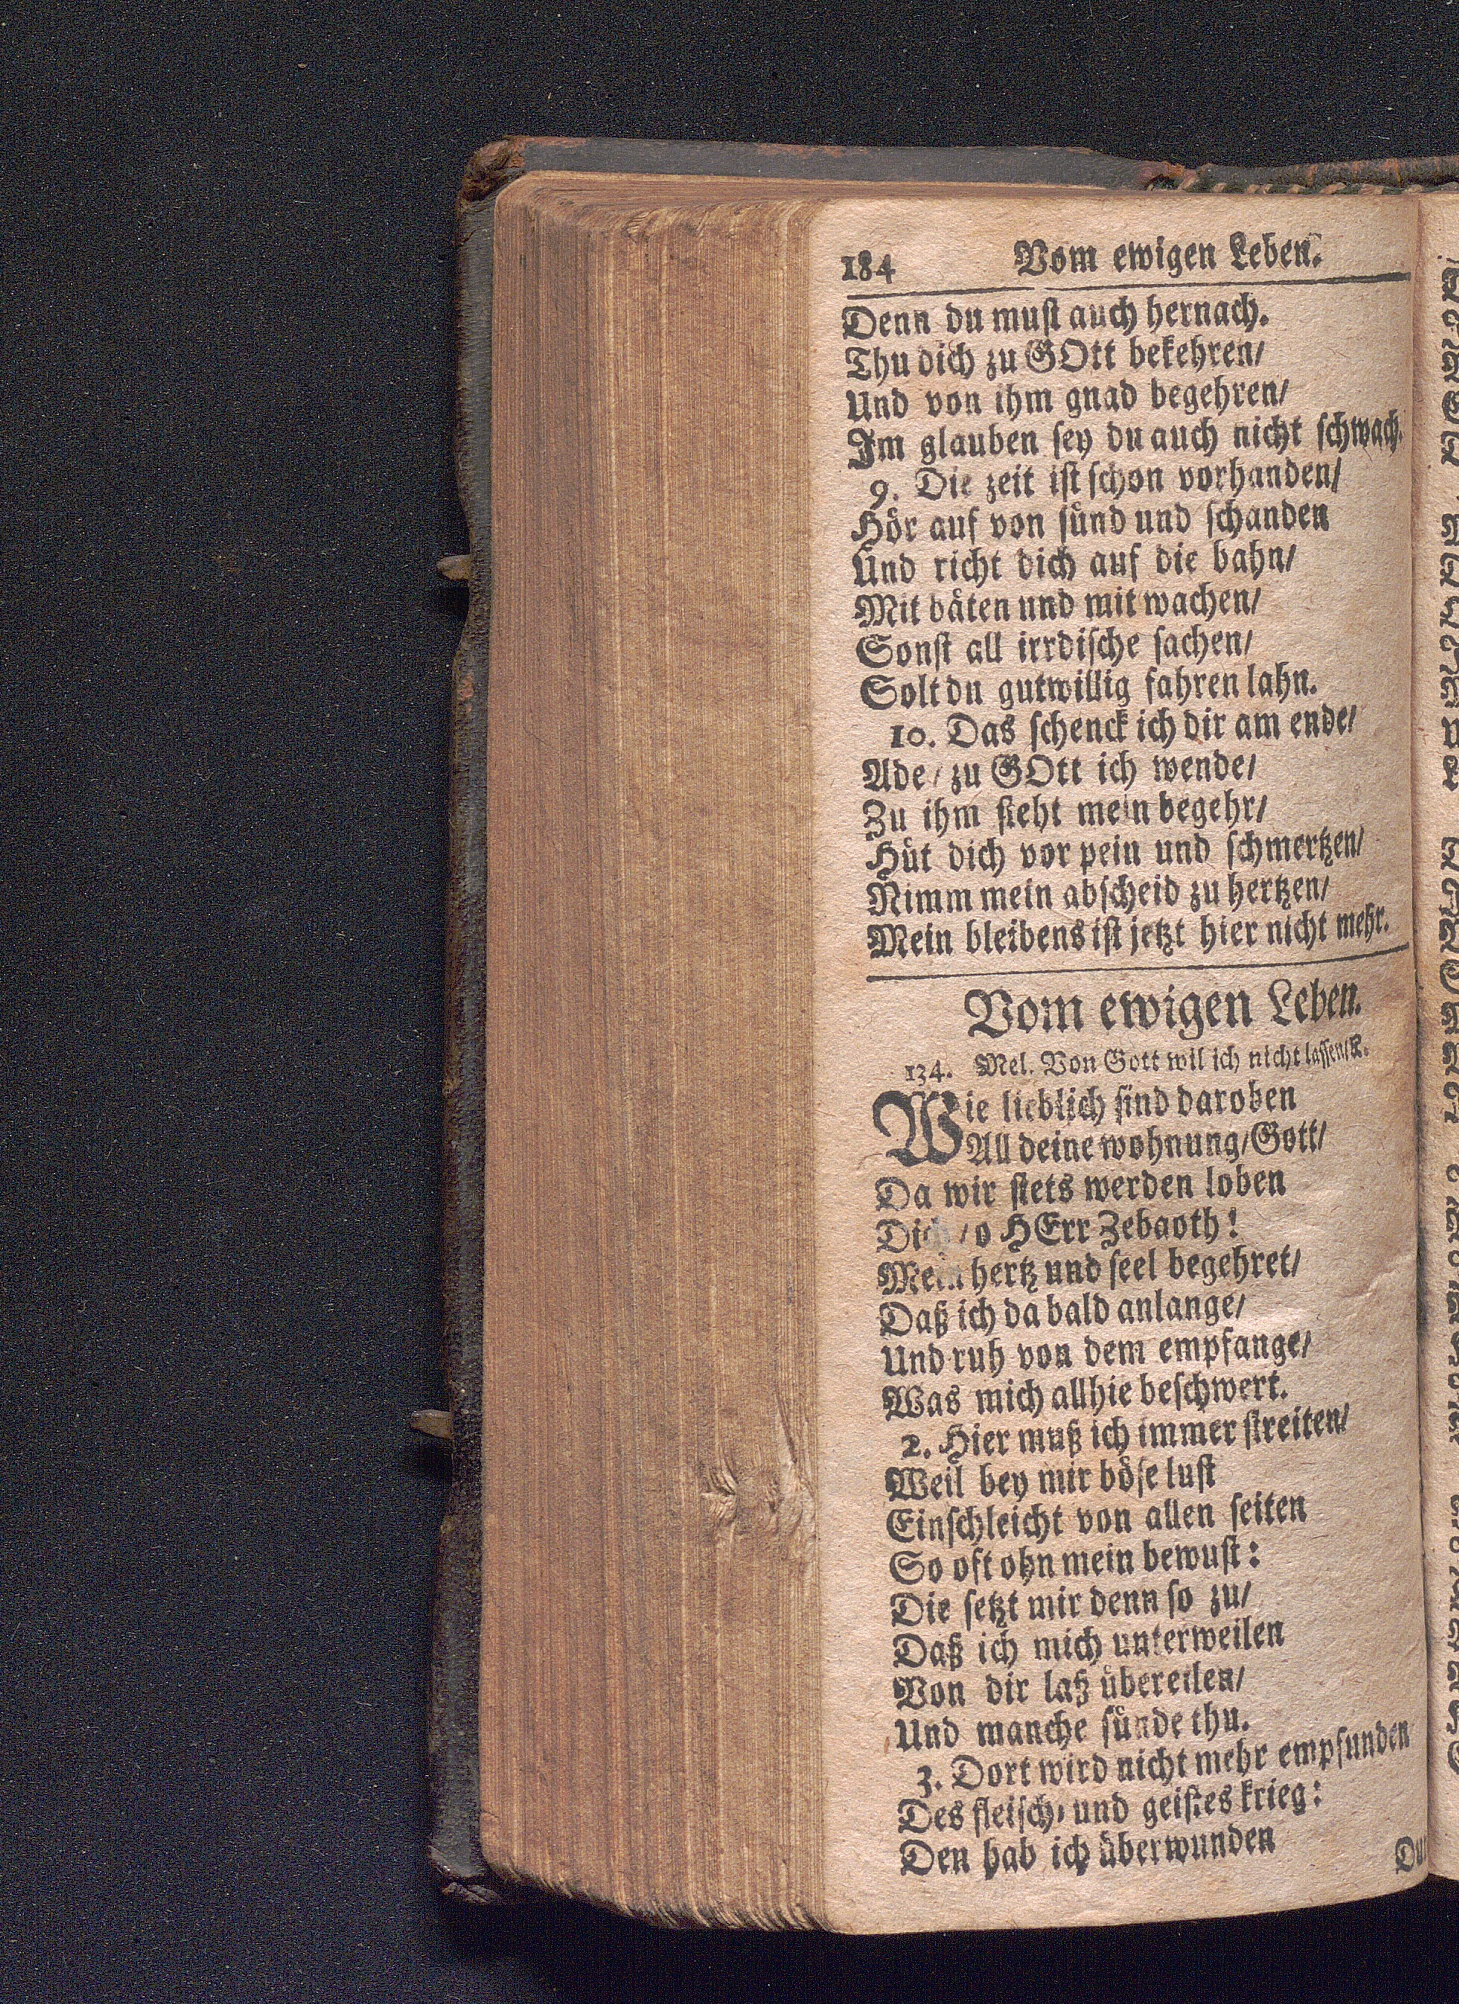 184 Vom ewigen Leben.
Denn du must auch hernach.
Thu dich zu GOtt bekehren/
Und von ihm gnad begehren/
Im glauben sey du auch nicht schwach.
9. Die zeit ist schon vorhanden/
Hör auf von sünd und schanden
Und richt dich auf die bahn/
Mit bäten und mit wachen/
Sonst all irrdische sachen/
Solt du gutwillig fahren lahn.
10. Das schenck ich dir am ende/
Ade/ zu GOtt ich wende/
Zu ihm steht mein begehr/
Hüt dich vor pein und schmertzen/
Nimm mein abscheid zu hertzen/
Mein bleibens ist jetzt hier nicht mehr.
Vom ewigen Leben.
134. Mel. Von Gott wil ich nicht lassen/ꝛc.
Wie lieblich sind daroben
All deine wohnung/Gott/
Da wir stets werden loben
Dich/o HErr Zebaoth!
Mein hertz und seel begehret/
Daß ich da bald anlange/
Und ruh von dem empfange/
Was mich allhie beschwert.
2. Hier muß ich immer streiten/
Weil bey mir böse lust
Einschleicht von allen seiten
So oft ohn mein bewust:
Die setzt mir denn so zu/
Daß ich mich unterweilen
Von dir laß übereilen/
Und manche sünde thu.
3. Dort wird nicht mehr empfunden
Des fleisch- und geistes krieg:
Den hab ich überwunden